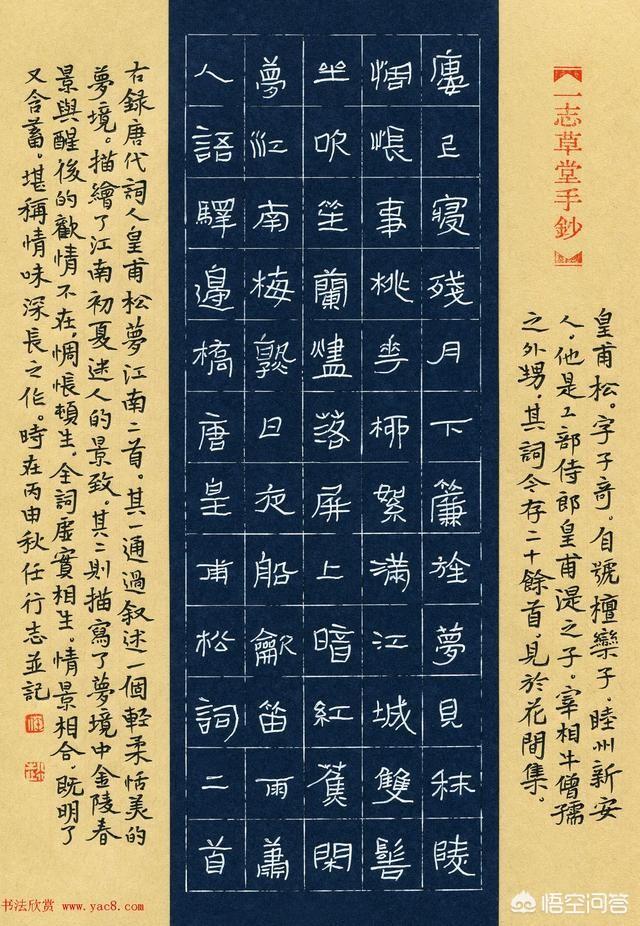 【一志草堂手鈔】
皇甫松。字子奇。自號檀欒子。睦州新安
人。他是工部侍郎皇甫湜之子。宰相牛僧孺
之外甥。其詞今存二十餘首。見於花間集。
廔上寢殘月下簾旌夢見秣陵
惆悵事桃花柳絮滿江城雙髻
坐吹笙蘭燼落屏上暗紅蕉閑
夢江南梅熟日夜船龡笛雨蕭
人語驛邊橋唐皇甫松詞二首
右錄唐代詞人皇甫松夢江南二首。其一通過叙述一個輕柔恬美的
夢境。描繪了江南初夏迷人的景致。其二則描寫了夢境中金陵春
景與醒後的歡情不在。惆悵頓生。全詞虛實相生。情景相合。既明了
又含蓄。堪稱情味深長之作。時在丙申秋任行志並記
书法欣赏 www.yac8.com
悟空问答